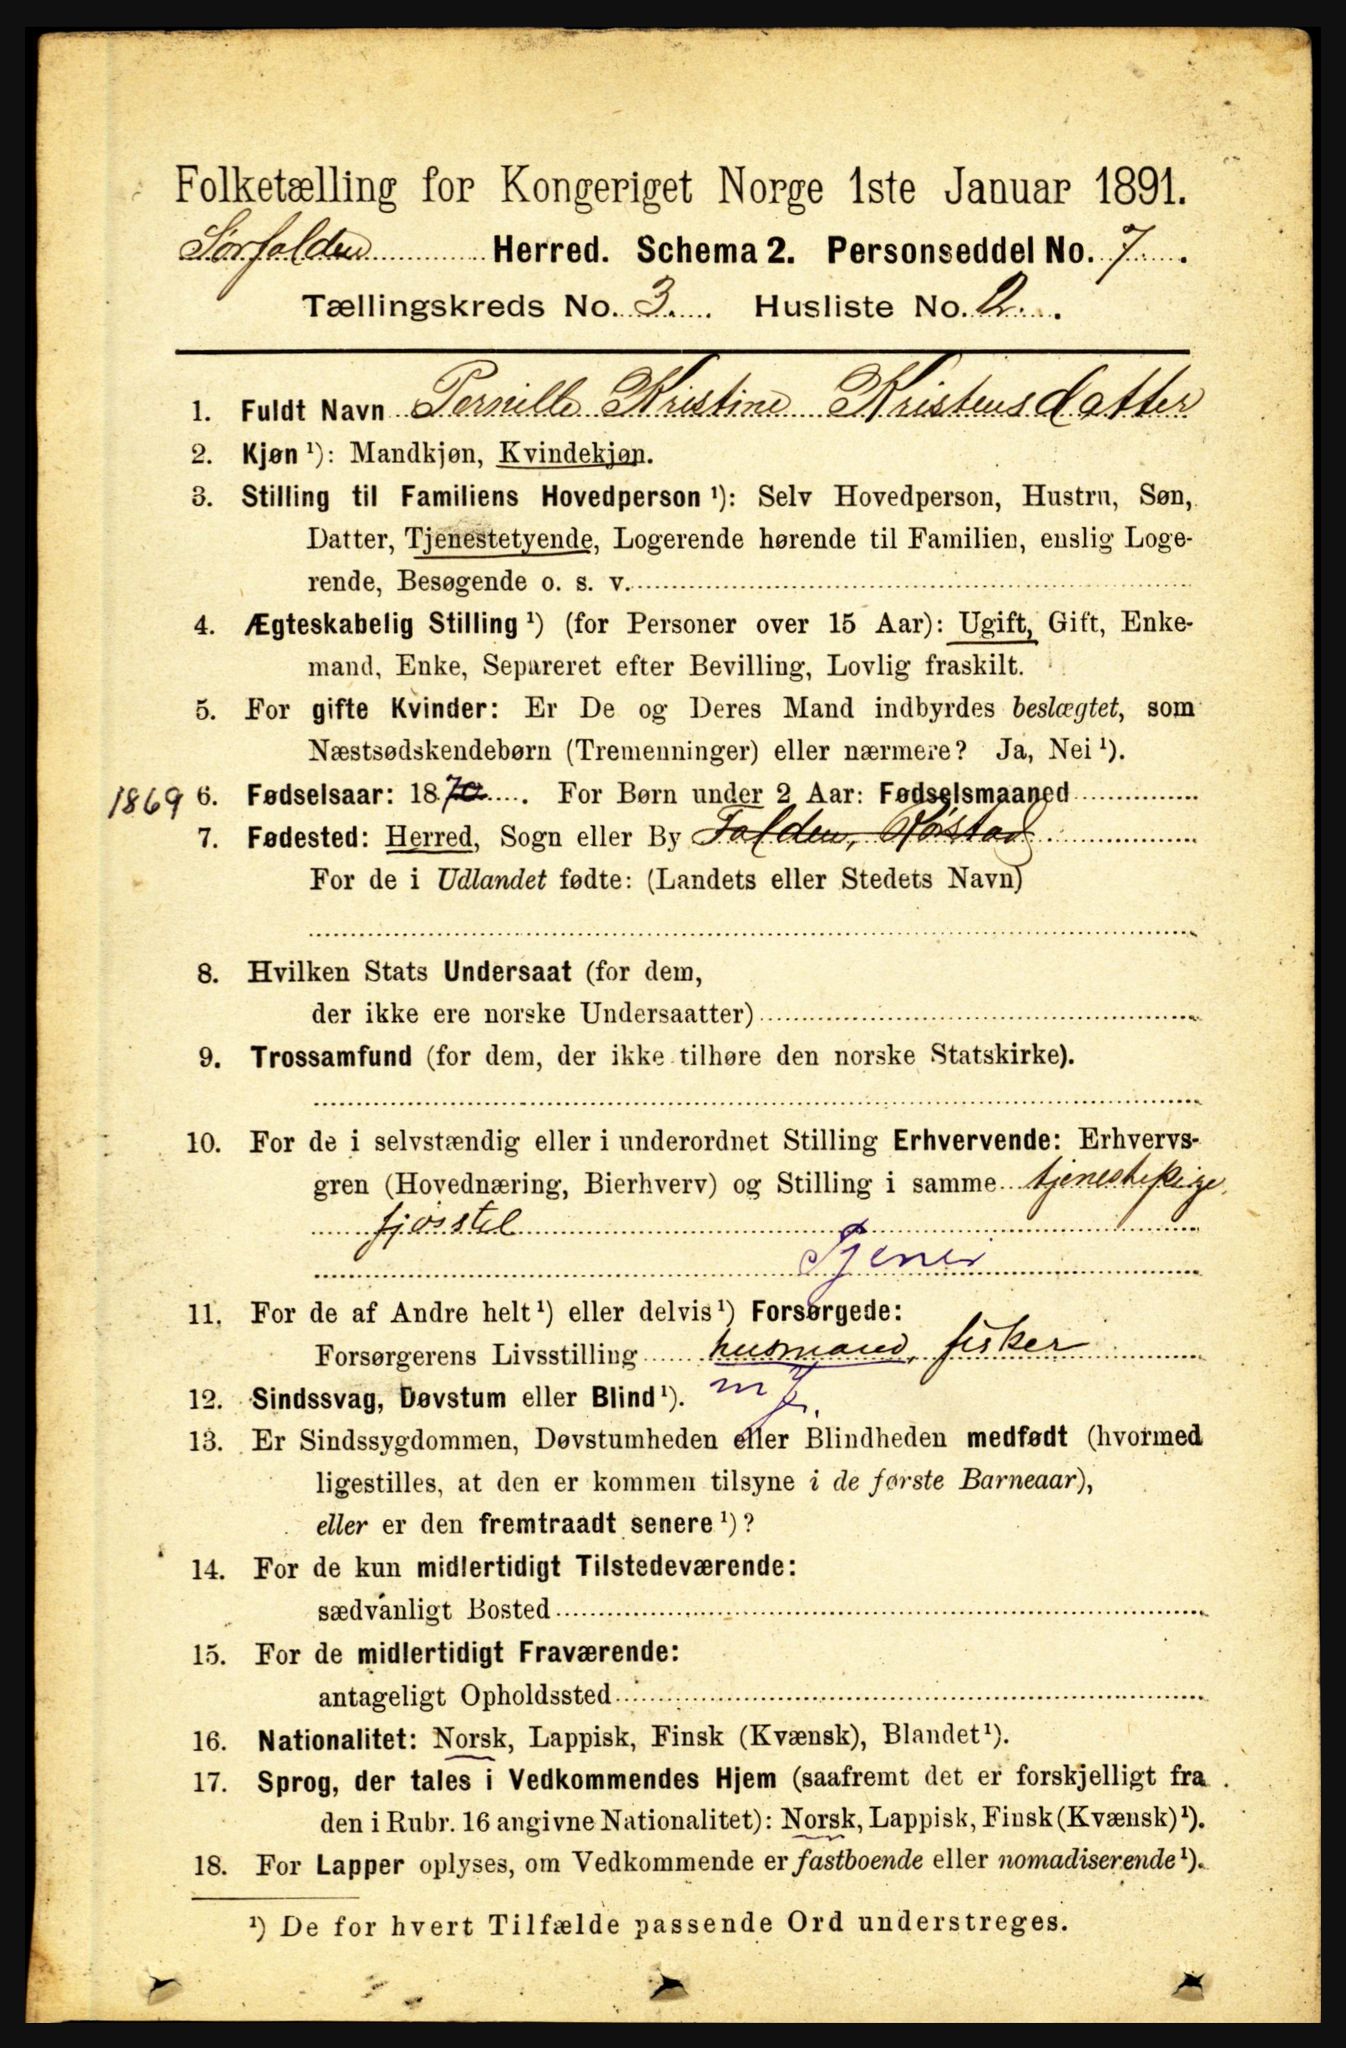 Folketælling for Kongeriget Norge 1ste Januar 1891.
Sørfolden Herred. Schema 2. Personseddel No. 7.
Tællingskreds No. 3. Husliste No. 2.
1. Fuldt Navn Pernille Kristine Kristensdatter
2. Kjøn ¹): Mandkjøn, Kvindekjøn.
3. Stilling til Familiens Hovedperson ¹): Selv Hovedperson, Hustru, Søn,
Datter, Tjenestetyende, Logerende hørende til Familien, enslig Loge-
rende, Besøgende o. s. v.
4. Ægteskabelig Stilling ¹) (for Personer over 15 Aar): Ugift, Gift, Enke-
mand, Enke, Separeret efter Bevilling, Lovlig fraskilt.
5. For gifte Kvinder: Er De og Deres Mand indbyrdes beslægtet, som
Næstsødskendebørn (Tremenninger) eller nærmere? Ja, Nei ¹).
1869 6. Fødselsaar: 1870. For Børn under 2 Aar: Fødselsmaaned
7. Fødested: Herred, Sogn eller By Folden, Rørstad
For de i Udlandet fødte: (Landets eller Stedets Navn)
8. Hvilken Stats Undersaat (for dem,
der ikke ere norske Undersaatter)
9. Trossamfund (for dem, der ikke tilhøre den norske Statskirke).
10. For de i selvstændig eller i underordnet Stilling Erhvervende: Erhvervs-
gren (Hovednæring, Bierhverv) og Stilling i samme tjenestepige,
fjøsstel
Tjener
11. For de af Andre helt ¹) eller delvis ¹) Forsørgede:
Forsørgerens Livsstilling husmand, fisker
12. Sindssvag, Døvstum eller Blind ¹). m J.
13. Er Sindssygdommen, Døvstumheden eller Blindheden medfødt (hvormed
ligestilles, at den er kommen tilsyne i de første Barneaar),
eller er den fremtraadt senere ¹)?
14. For de kun midlertidigt Tilstedeværende:
sædvanligt Bosted
15. For de midlertidigt Fraværende:
antageligt Opholdssted
16. Nationalitet: Norsk, Lappisk, Finsk (Kvænsk), Blandet ¹).
17. Sprog, der tales i Vedkommendes Hjem (saafremt det er forskjelligt fra
den i Rubr. 16 angivne Nationalitet): Norsk, Lappisk, Finsk (Kvænsk) ¹).
18. For Lapper oplyses, om Vedkommende er fastboende eller nomadiserende ¹).
¹) De for hvert Tilfælde passende Ord understreges.